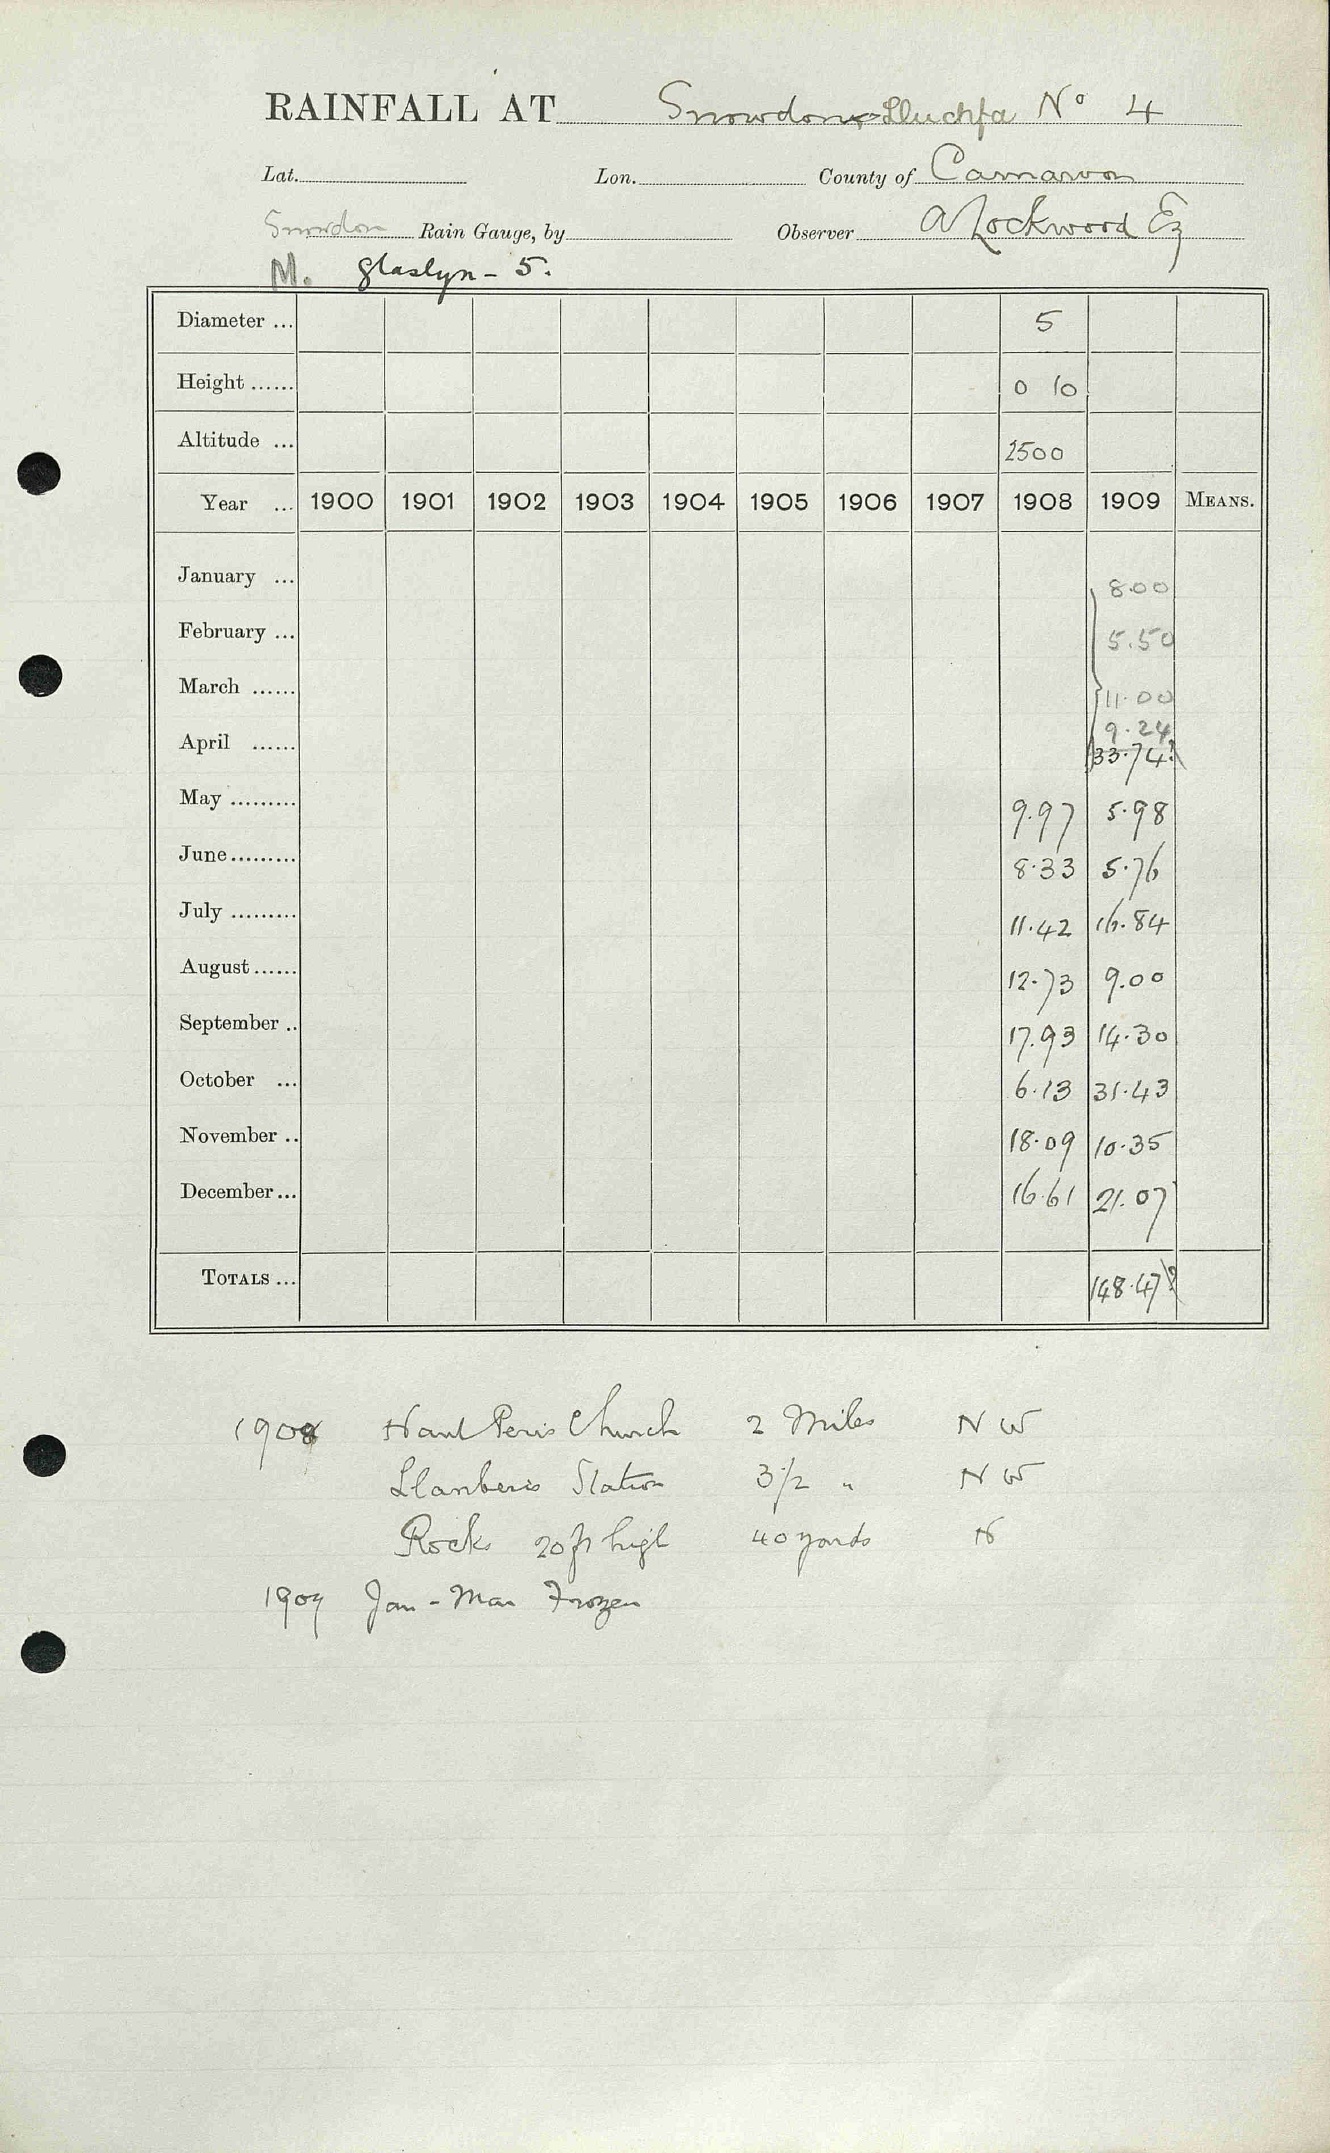 RAINFALL AT Snowdon Lluchfa No 4
Lat. Lon. County of Carnarvon
Snowdon Rain Gauge, by Observer A Lockwood Esq
M. Glaslyn - 5.
Diameter ... 5
Height ...... 0 10
Altitude ... 2500
Year ... 1900 1901 1902 1903 1904 1905 1906 1907 1908 1909 MEANS.
January ... 8.00
February ... 5.50
March ...... 11.00
9.24
April ...... 33.74?
May ......... 9.97 5.98
June......... 8.33 5.76
July ......... 11.42 16.84
August...... 12.73 9.00
September .. 17.93 14.30
October ... 6.13 31.43
November .. 18.09 10.35
December... 16.61 21.07
TOTALS ... 148.47?
1908 Nant Peris Church 2 Miles N W
Llanberis Station 3½ " N W
Rocks 20 ft high 40 yards N
1909 Jan - Mar Frozen